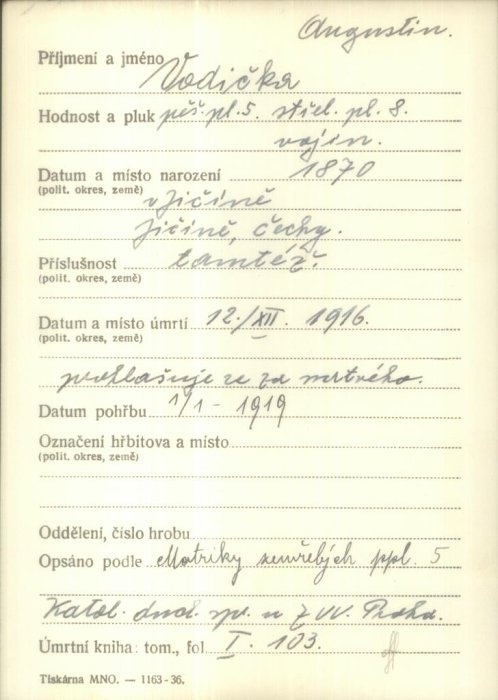 Augustin.
Příjmení a jméno Vodička
Hodnost a pluk pěš. pl. 5. střel. pl. 8.
vojín.
Datum a místo narození 1870
(polit. okres, země) v Jičíně
Jičíně, Čechy.
Příslušnost tamtéž.
(polit. okres, země)
Datum a místo úmrtí 12./XII. 1916.
(polit. okres, země)
prohlašuje se za mrtvého.
Datum pohřbu 1/1 - 1919
Označení hřbitova a místo
(polit. okres, země)
Oddělení, číslo hrobu
Opsáno podle Matriky zemřelých ppl. 5
Katol. duch. sp. u ZVV. Praha.
Úmrtní kniha: tom., fol. I. 103.
Tiskárna MNO. — 1163-36.